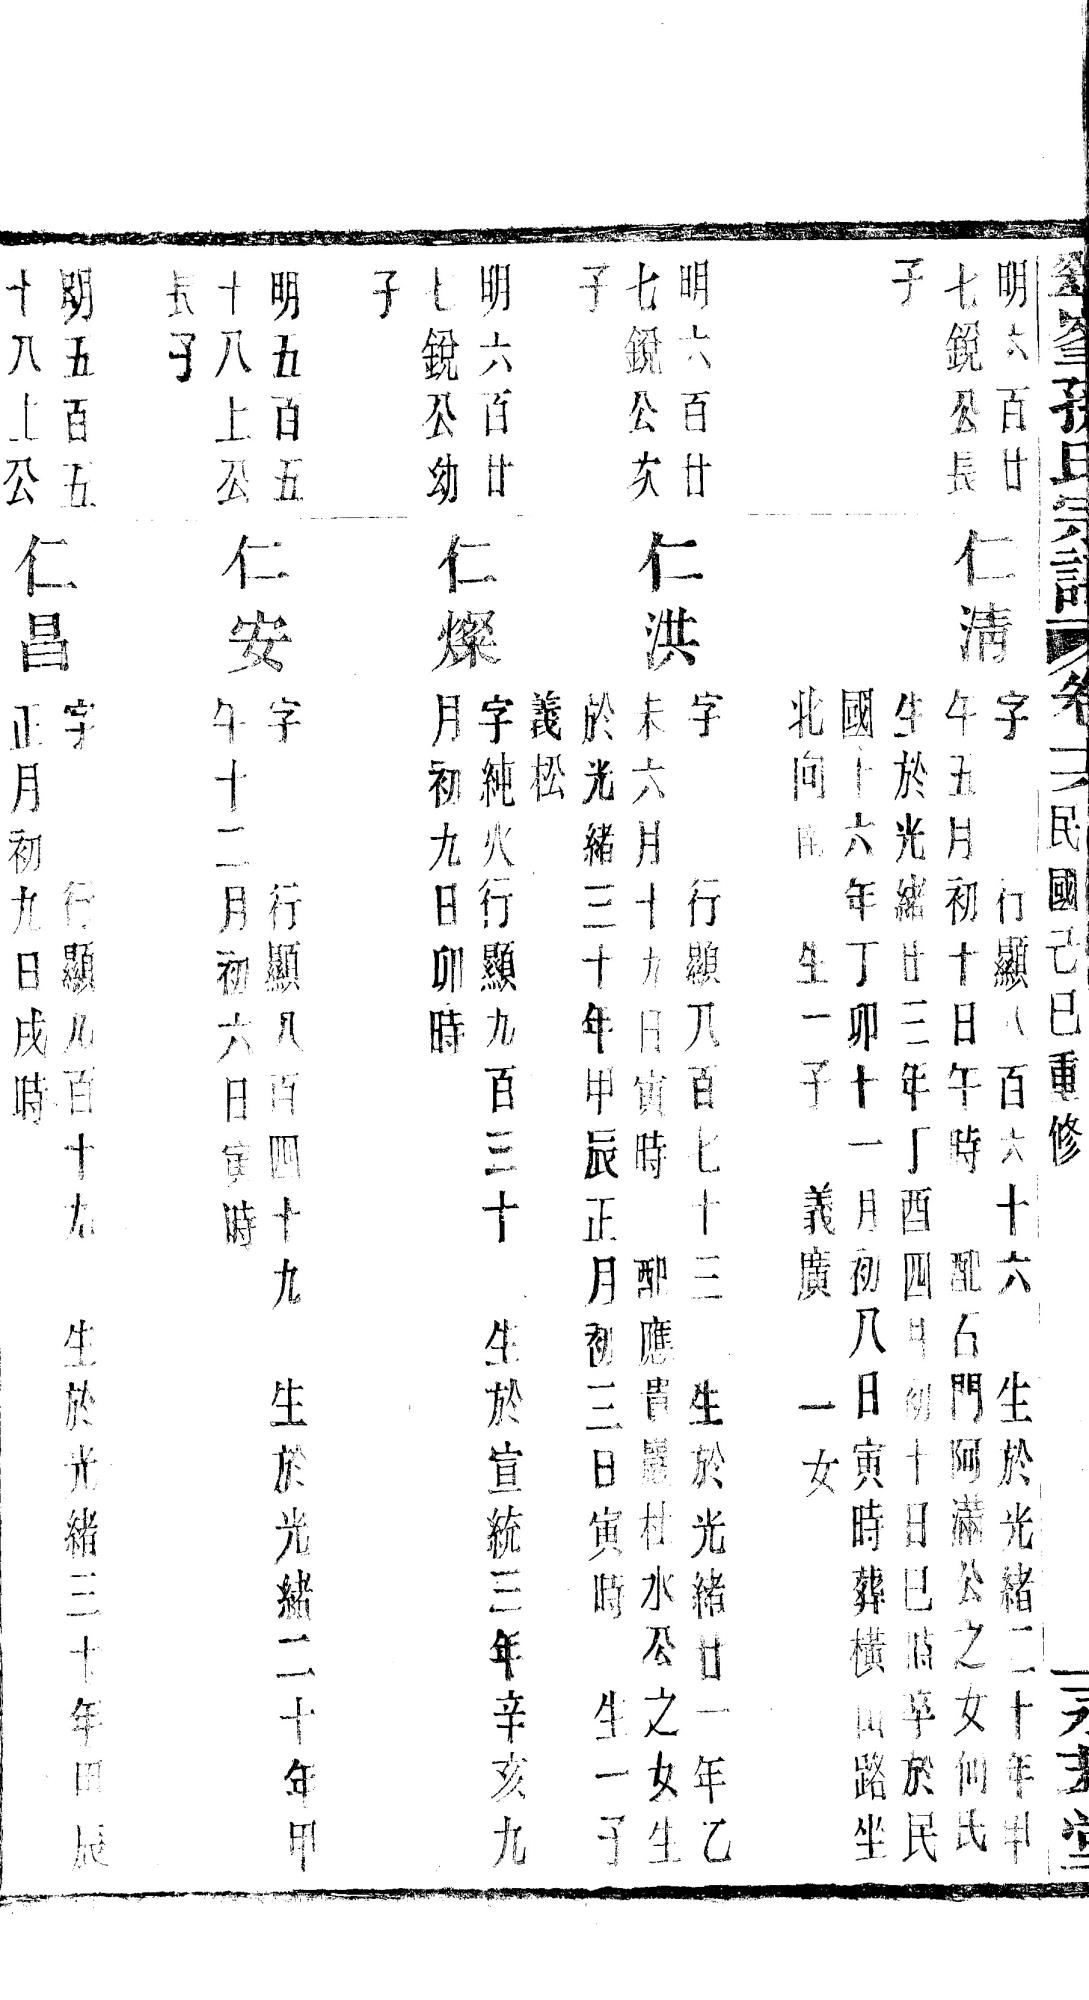 孫氏宗譜 卷 民國己巳重修
明六百廿
七銳公長
子
仁清
字 行顯八百六十六 生於光緒二十年甲
午五月初十日午時 配石門阿滿公之女何氏
生於光緒廿三年丁酉四月初十日巳時卒於民
國十六年丁卯十一月初八日寅時葬橫山路坐
北向南 生一子 義廣 一女
明六百廿
七銳公次
子
仁洪
字 行顯八百七十三 生於光緒廿一年乙
未六月十九日寅時 配應貴巖杜水公之女生
於光緒三十年甲辰正月初三日寅時 生一子
義松
明六百廿
七銳公幼
子
仁燦
字純火行顯九百三十 生於宣統三年辛亥九
月初九日卯時
明五百五
十八上公
長子
仁安
字 行顯八百四十九 生於光緒二十年甲
午十二月初六日寅時
明五百五
十八上公
仁昌
字 行顯九百十九 生於光緒三十年甲辰
正月初九日戌時